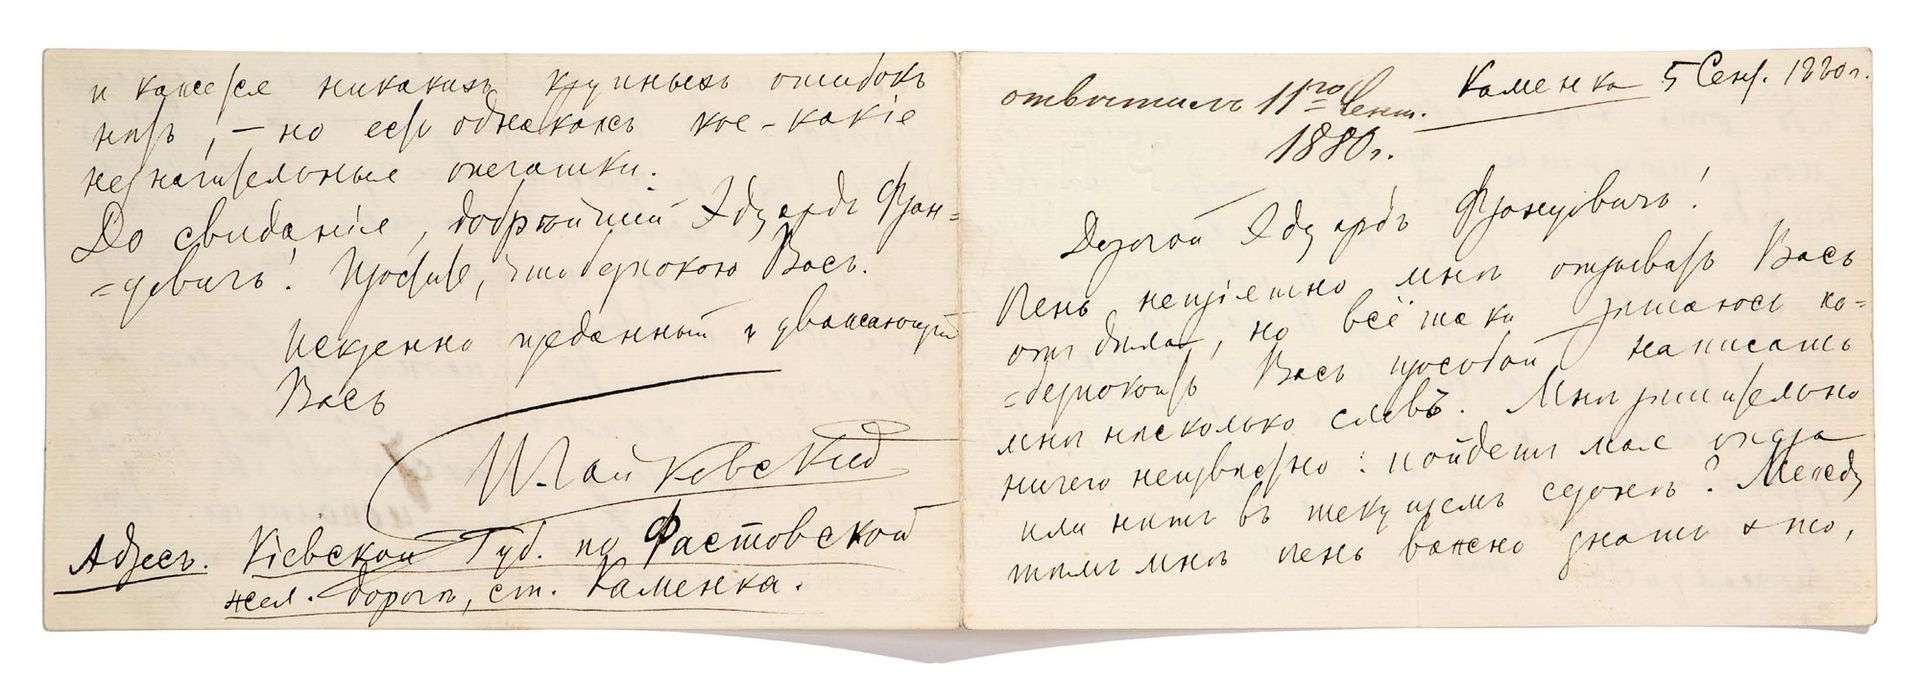 отвѣтилъ 11го Сент.
1880 г.
Каменка 5 Сент. 1880 г.
Дорогой Эдуардъ Францовичъ!
Очень непріятно мнѣ отрывать Васъ
отъ дѣла, но всё таки рѣшаюсь по-
=безпокоить Васъ просьбой написать
мнѣ нѣсколько словъ. Мнѣ рѣшительно
ничего неизвѣстно: пойдетъ моя опера
или нѣтъ въ текущемъ сезонѣ? Между
тѣмъ мнѣ очень важно знать это,
и кажется никакихъ крупныхъ ошибокъ
нѣтъ, — но есть однакожъ кое-какіе
незначительные опечатки.
До свиданія, добрѣйшій Эдуардъ Фран=
=цовичъ! Простите, что безпокою Васъ.
Искренно преданный и уважающій
Васъ
П. Чайковскій
Адресъ. Кіевской Губ. по Фастовской
жел. дорогѣ, ст. Каменка.